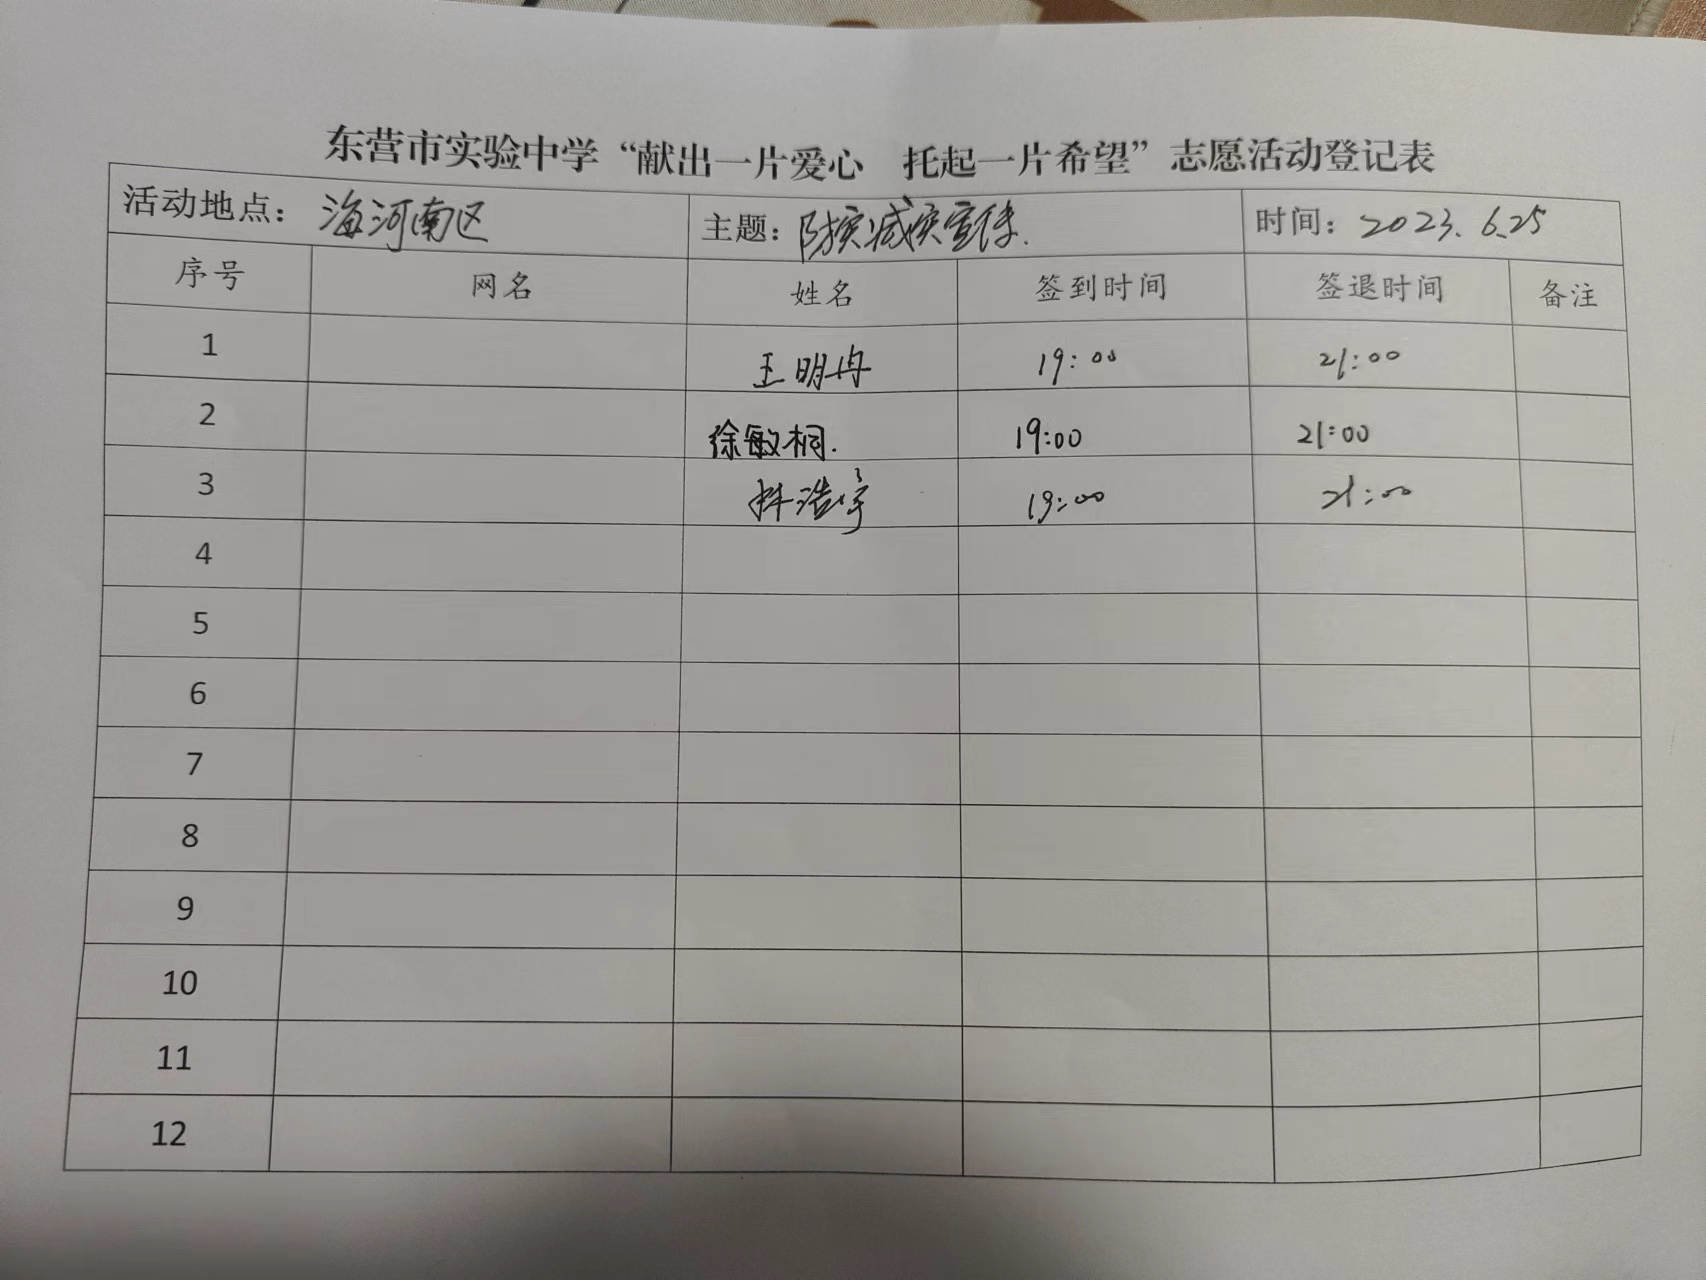 东营市实验中学“献出一片爱心 托起一片希望”志愿活动登记表
活动地点：海河南区 主题：防灾减灾宣传. 时间：2023.6.25
序号 网名 姓名 签到时间 签退时间 备注
1 王明冉 19:00 21:00
2 徐敏桐. 19:00 21:00
3 浩宇 19:00 21:00
4
5
6
7
8
9
10
11
12